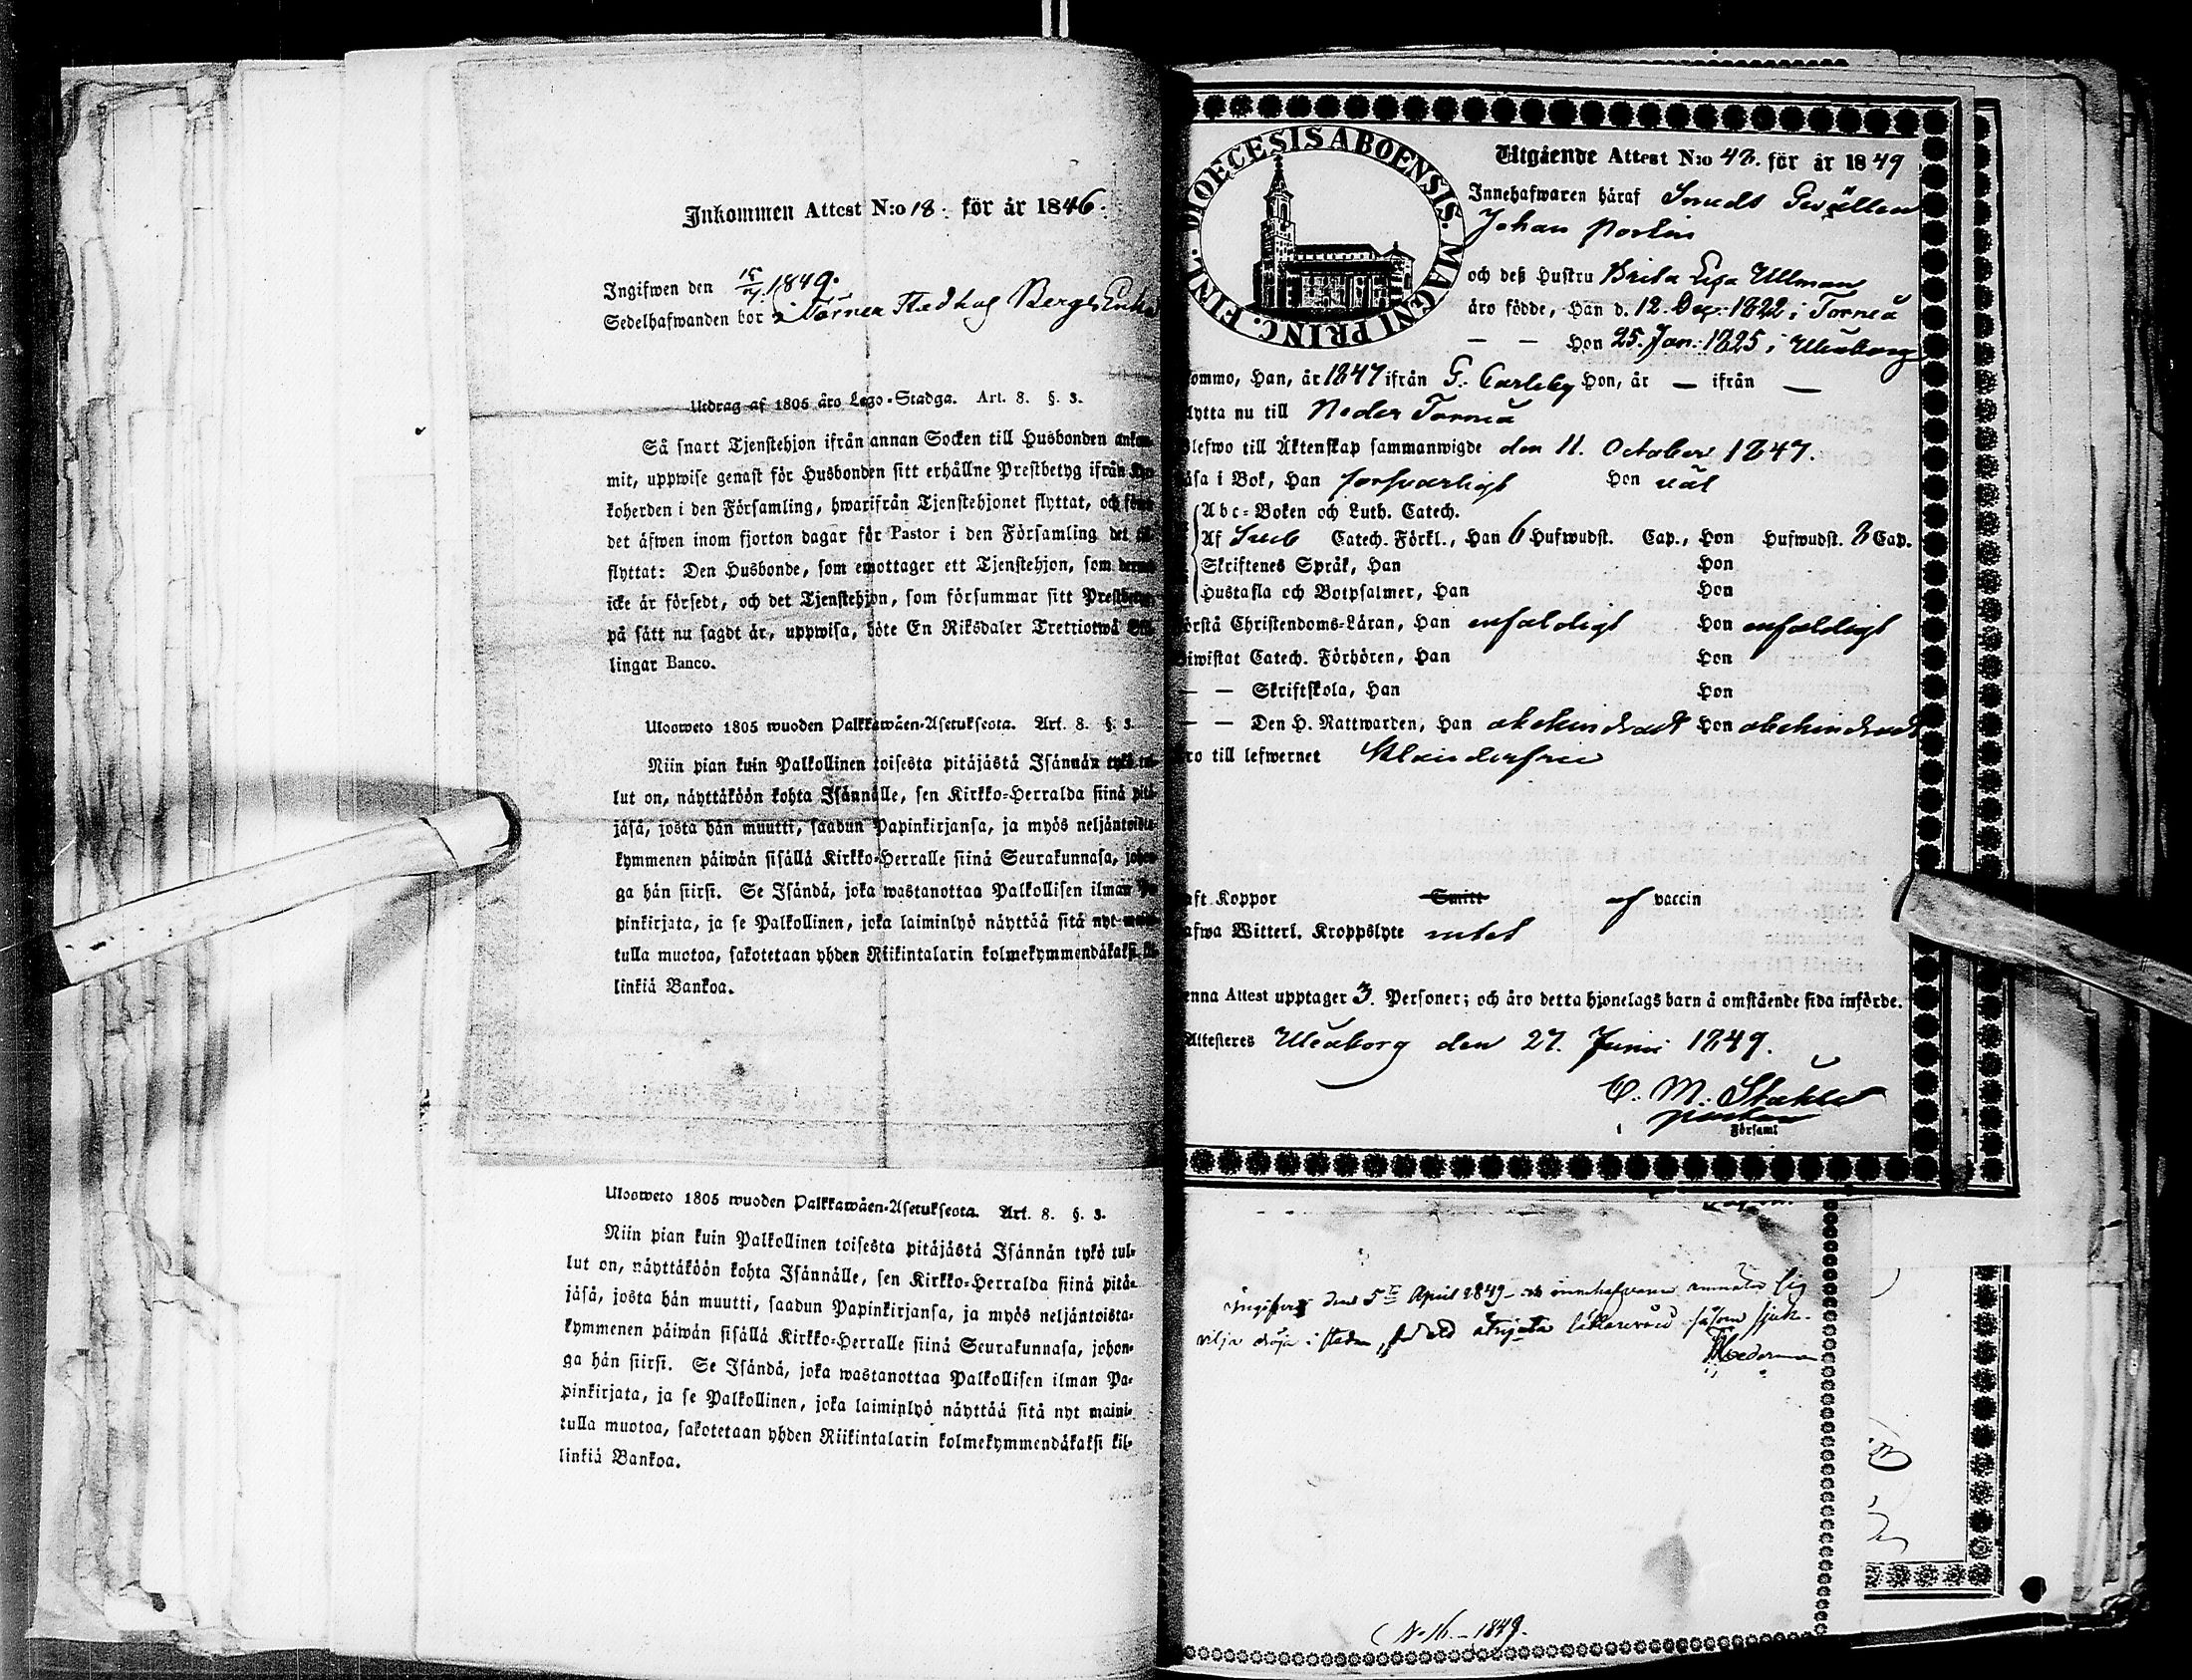 Inkommen Attest N:o 18. för år 1846.
Ingifwen den 15/7 1849.
Sedelhafwanden bor i Torneå Stad hos Bergs Enka
Utdrag af 1805 års Lego-Stadga. Art. 8. §. 3.
Så snart Tjenstehjon ifrån annan Socken till Husbonden ankom-
mit, uppwise genast för Husbonden sitt erhållne Prestbetyg ifrån Kyr-
koherden i den Församling, hwarifrån Tjenstehjonet flyttat, och före
det äfwen inom fjorton dagar för Pastor i den Församling det till
flyttat: Den Husbonde, som emottager ett Tjenstehjon, som dermed
icke är försedt, och det Tjenstehjon, som försummar sitt Prestbetyg
på sätt nu sagdt är, uppwisa, böte En Riksdaler Trettiotwå Skil-
lingar Banco.
Ulosweto 1805 wuoden Palkkawäen-Asetuksesta. Art. 8. §. 3.
Niin pian kuin Palkollinen toisesta pitäjästä Isännän tykö tul-
lut on, näyttäköön kohta Isännälle, sen Kirkko-Herralda siinä pitä-
jäsä, josta hän muutti, saadun Papinkirjansa, ja myös neljäntoista-
kymmenen päiwän sisällä Kirkko-Herralle siinä Seurakunnasa, johon-
ga hän siirsi. Se Isändä, joka wastanottaa Palkollisen ilman Pa-
pinkirjata, ja se Palkollinen, joka laiminlyö näyttää sitä nyt maini-
tulla muotoa, sakotetaan yhden Riikintalarin kolmekymmendäkaksi kil-
linkiä Bankoa.
Ulosweto 1805 wuoden Palkkawäen-Asetuksesta. Art. 8. §. 3.
Niin pian kuin Palkollinen toisesta pitäjästä Isännän tykö tul-
lut on, näyttäköön kohta Isännälle, sen Kirkko-Herralda siinä pitä-
jäsä, josta hän muutti, saadun Papinkirjansa, ja myös neljäntoista-
kymmenen päiwän sisällä Kirkko-Herralle siinä Seurakunnasa, johon-
ga hän siirsi. Se Isändä, joka wastanottaa Palkollisen ilman Pa-
pinkirjata, ja se Palkollinen, joka laiminlyö näyttää sitä nyt maini-
tulla muotoa, sakotetaan yhden Riikintalarin kolmekymmendäkaksi kil-
linkiä Bankoa.
DIOECESIS ABOENSIS. MAGNI PRINC. FINL.
Utgående Attest N:o 42. för år 1849
Innehafwaren häraf Smeds Gesällen
Johan Portin
och deß Hustru Brita Lisa Ullman
äro födde, Han d. 12. Dec. 1822 i Torneå
— — Hon 25. Jan: 1825 i Uleåborg
kommo, Han, år 1847 ifrån G. Carleby Hon, år — ifrån —
flytta nu till Neder Torneå
Blefwo till Äktenskap sammanwigde den 11. October 1847.
Läsa i Bok, Han försvarligt Hon väl
Abc-Boken och Luth. Catech.
Af Sveb Catech. Förkl., Han 6 Hufwudst. Cap., Hon Hufwudst. 8 Cap.
Skriftenes Språk, Han Hon
Hustafla och Botpsalmer, Han Hon
Förstå Christendoms-Läran, Han enfaldigt Hon enfaldigt
Biwistat Catech. Förhören, Han Hon
— — Skriftskola, Han Hon
— — Den H. Nattwarden, Han obehindradt Hon obehindradt
äro till lefwernet Klanderfrie
Haft Koppor Smitt af vaccin
Hafwa Witterl. Kroppslyte intet
Denna Attest upptager 3. Personer; och äro detta hjonelags barn å omstående sida införde.
Attesteres Uleåborg den 27. Junii 1849.
C. M. Ståhle
pastor
i Församl
Ingifvet den 5te April 1849 innehafvaren anmäler sig
vilja dröja i staden, för att åtnjuta läkarevård såsom sjuk.
(N:o 16. – 1849.